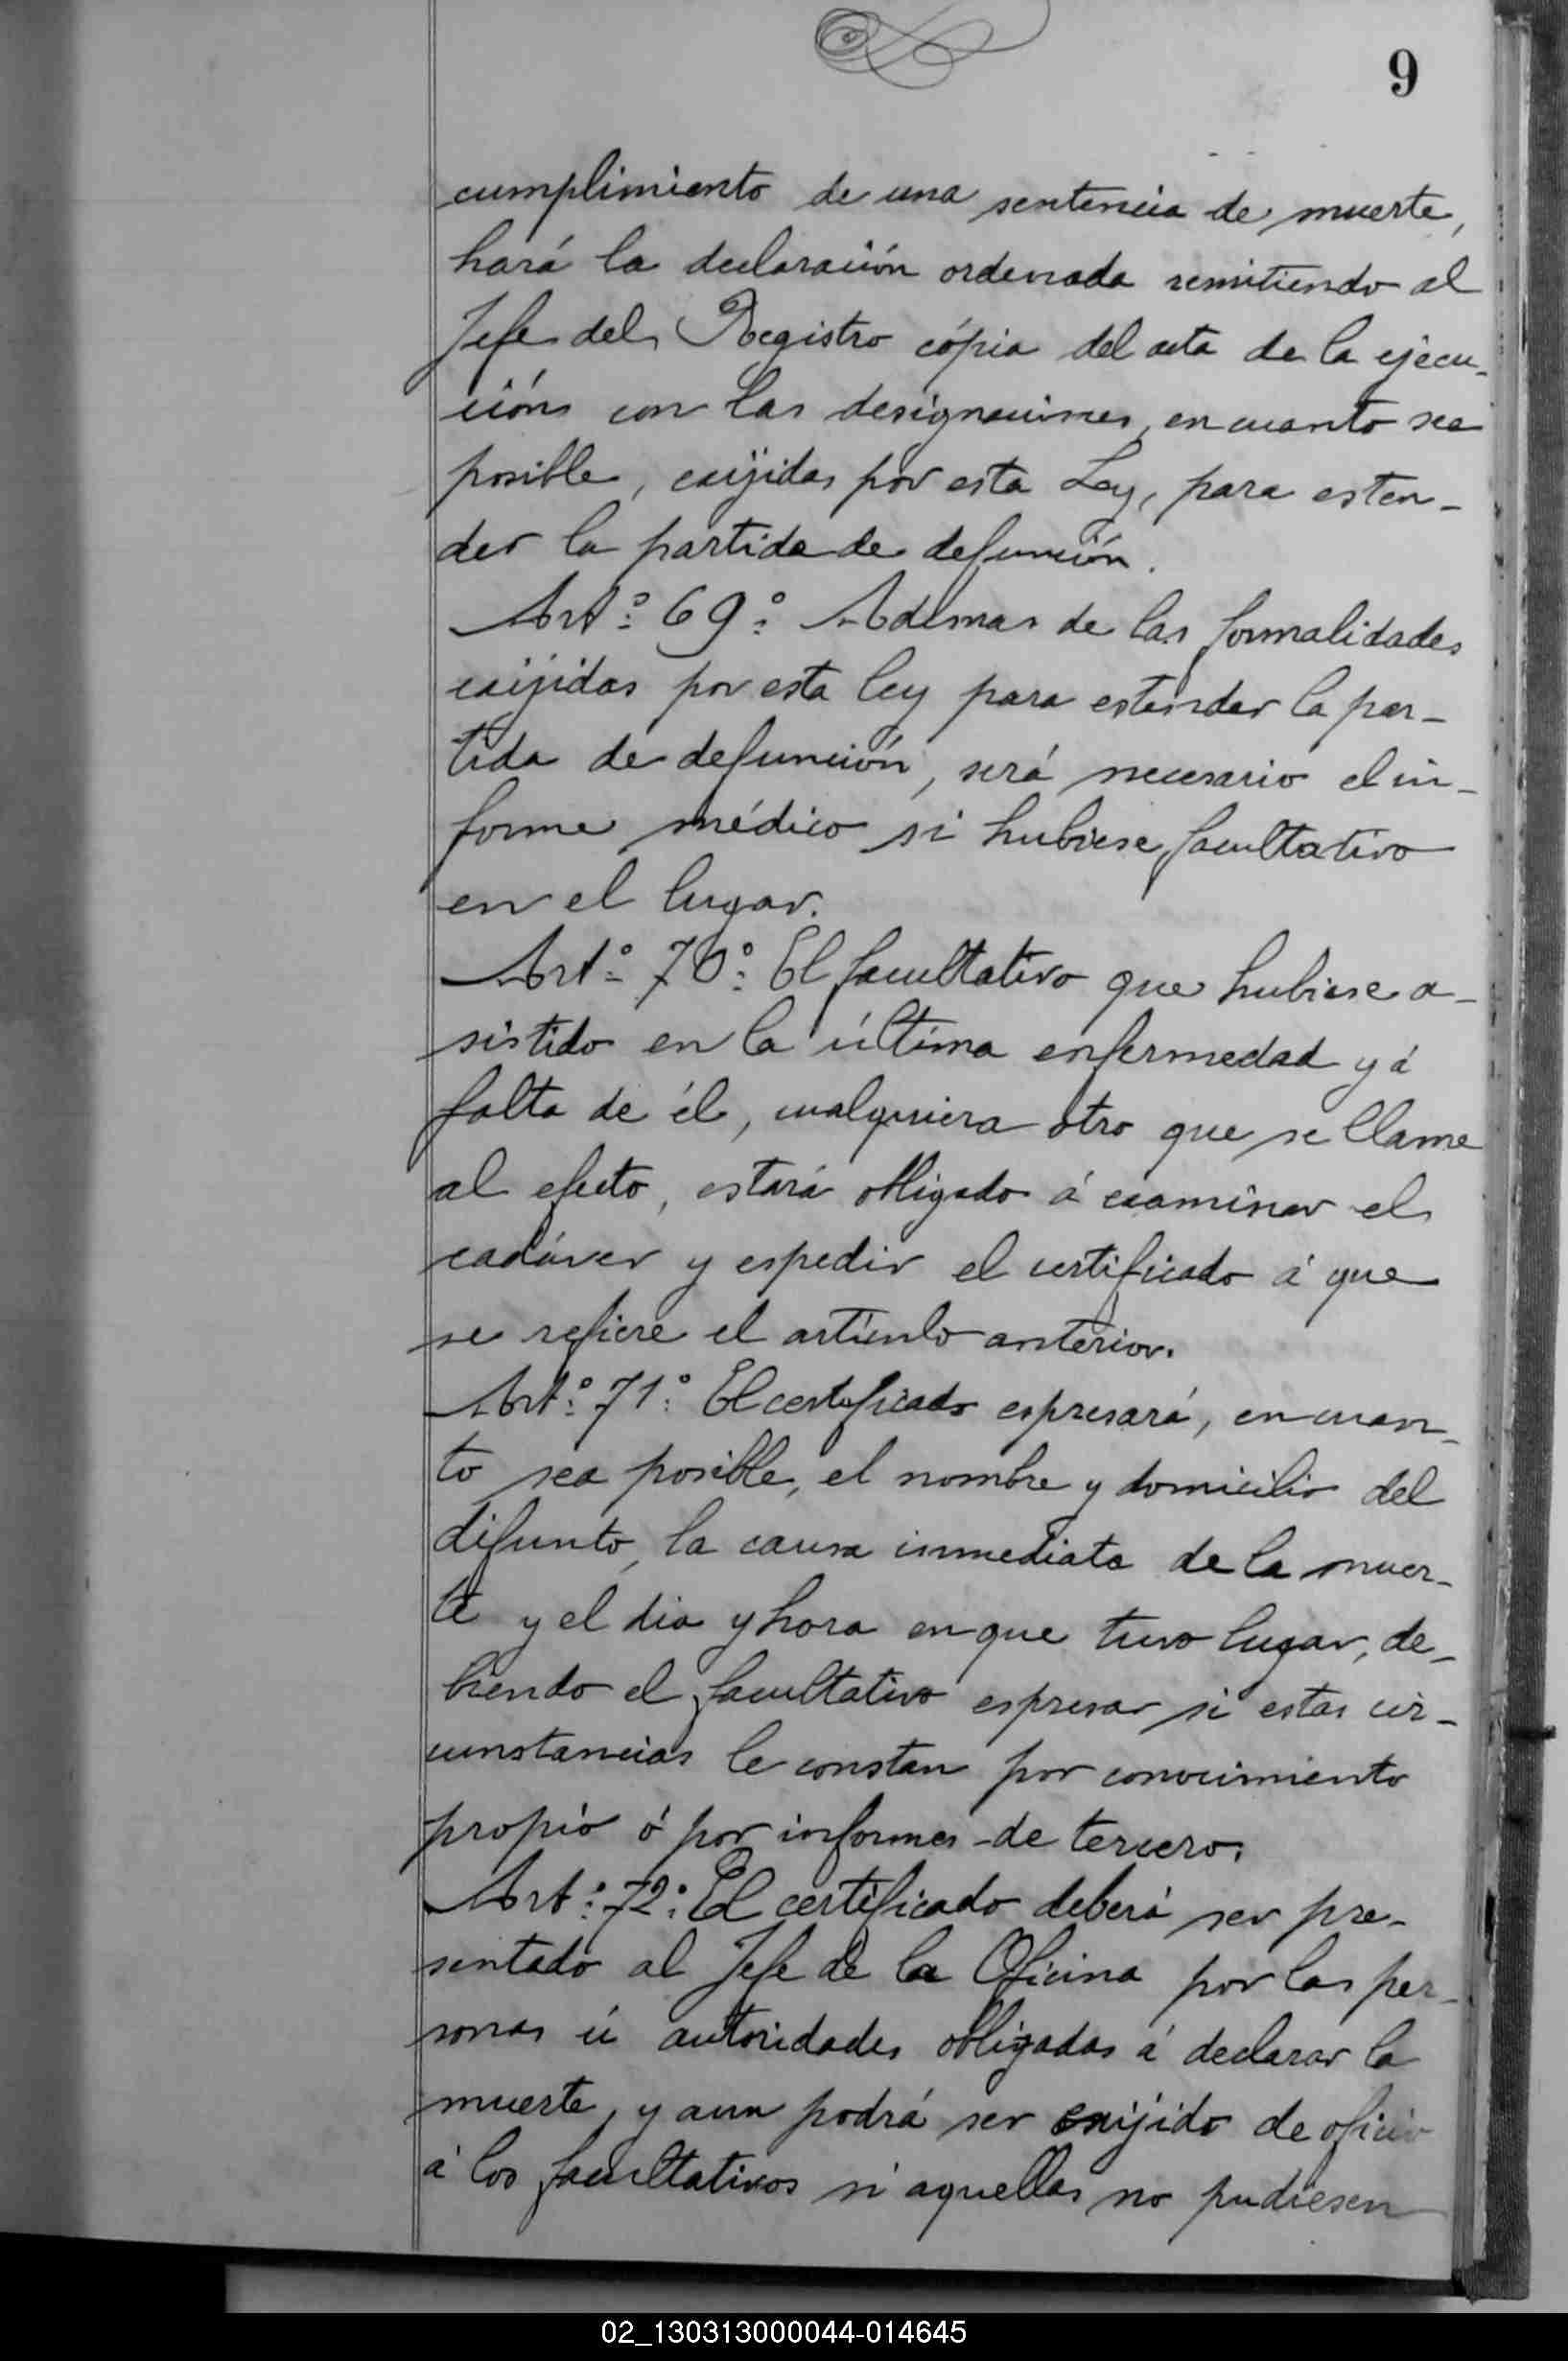 9
cumplimiento de una sentencia de muerte,
hará la declaración ordenada remitiendo al
Jefe del Registro cópia del acta de la ejecu-
ción con las designaciones, en cuanto sea
posible, exijidas por esta Ley, para esten-
der la partida de defunción.
Artº 69º Ademas de las formalidades
exijidas por esta ley para estender la par-
tida de defunción, será necesario el in-
forme médico si hubiese facultativo
en el lugar.
Artº 70º El facultativo que hubiese a-
sistido en la última enfermedad y á
falta de él, cualquiera otro que se llame
al efecto, estará obligado á examinar el
cadáver y espedir el certificado á que
se refiere el artículo anterior.
Artº 71º El certificado espresará, en cuan-
to sea posible, el nombre y domicilio del
difunto, la causa inmediata de la muer-
te y el dia y hora en que tuvo lugar, de-
biendo el facultativo espresar si estas cir-
cunstancias le constan por conocimiento
propio ó por informes de tercero.
Artº 72º El certificado deberá ser pre-
sentado al Jefe de la Oficina por las per-
sonas ú autoridades obligadas á declarar la
muerte, y aun podrá ser exijido de oficio
á los facultativos si aquellas no pudiesen
02_130313000044-014645